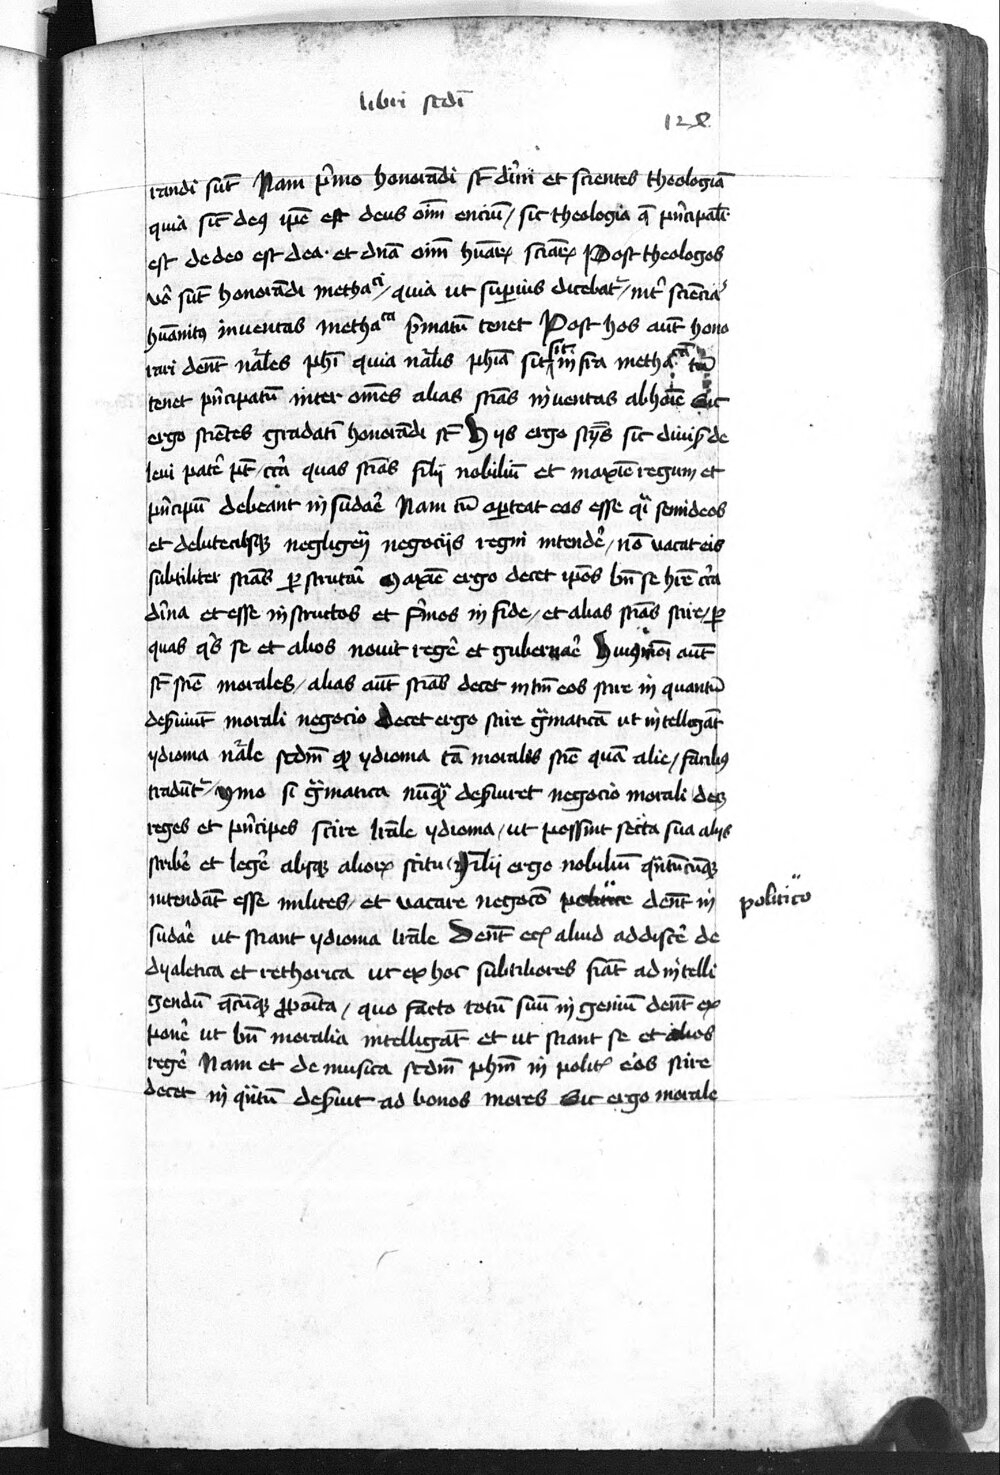 libri scdi
128
randi sūt Nam p̄mo honorādi st̄ diuī et scientes theologiā
quia sic̄ deꝯ ip̄e est deus oīm enciū / sic theologia q̄ pn̄cipalr̄
est de deo est dea · et dn̄a oīm hūaꝝ sciaꝝ Post theologos
vō sūt honorādi methaci / quia ut superius dicebat̄ / int̄ sciēcias
hūanitꝰ inuentas methaca p̄matū tenet Post hos aūt hono
rari dent̄ nāles phī quia nālis phīa sit sit in fra metha cā tn̄
tenet pn̄cipatū inter om̄es alias scīas inuentas ab hoīe Sic
ergo scient̄es gradatī honorādi st̄ Hijs ergo scijs sic diuisis de
leui patē pt̄ / cc̄a quas scīas filij nobiliū et maxīe regum et
pn̄cipū debeant in sudaē Nam cū oporteat eos esse q̄i semideos
et debitecibsqꝫ negligeīj negocijs regni intendē / nō vacat eis
subtiliter scīas perscrutaī Maxīe ergo decet ip̄os bn̄ se hr̄e cc̄a
diīna et esse instructos et f̄mos in fide / et alias scīas scire / per
quas q̄s se et alios nouit regē et gubernaē Huiꝯmōi aūt
st̄ scīe morales / alias aūt scīas decet intm̄ eos scire in quantū
deseruiūt morali negocio Decet ergo scire gm̄aticā ut intelligāt
ydioma nāle scdm̄ qꝫ ydioma tā morales scīe quā alie / faciliꝰ
tradūt̄ / Ymo si gm̄atica nūqꝫ deseruiret negocio morali deꝫ
reges et pn̄cipes scire lr̄ale ydioma / ut possint secr̄a sua alijs
scribē et legē absqꝫ alioꝝ scitu Filij ergo nobiliū qn̄tūcūqꝫ
intendāt esse milites / et vacare negocō politice dent̄ in
politico
sudaē ut sciant ydioma lr̄ale Dent̄ ecī aliud addiscē de
dyaletica et rethorica ut ex hoc subtiliores fiāt ad intelli
gendū q̄cūqꝫ ꝓpoīta / quo facto totū suū ingeniū dent̄ ex
ponē ut bn̄ moralia intelligāt et ut sciant se et alios
regē Nam et de musica scdm̄ phm̄ in polit̄ eos scire
decet in qn̄tū deseruit ad bonos mores Sic ergo morale